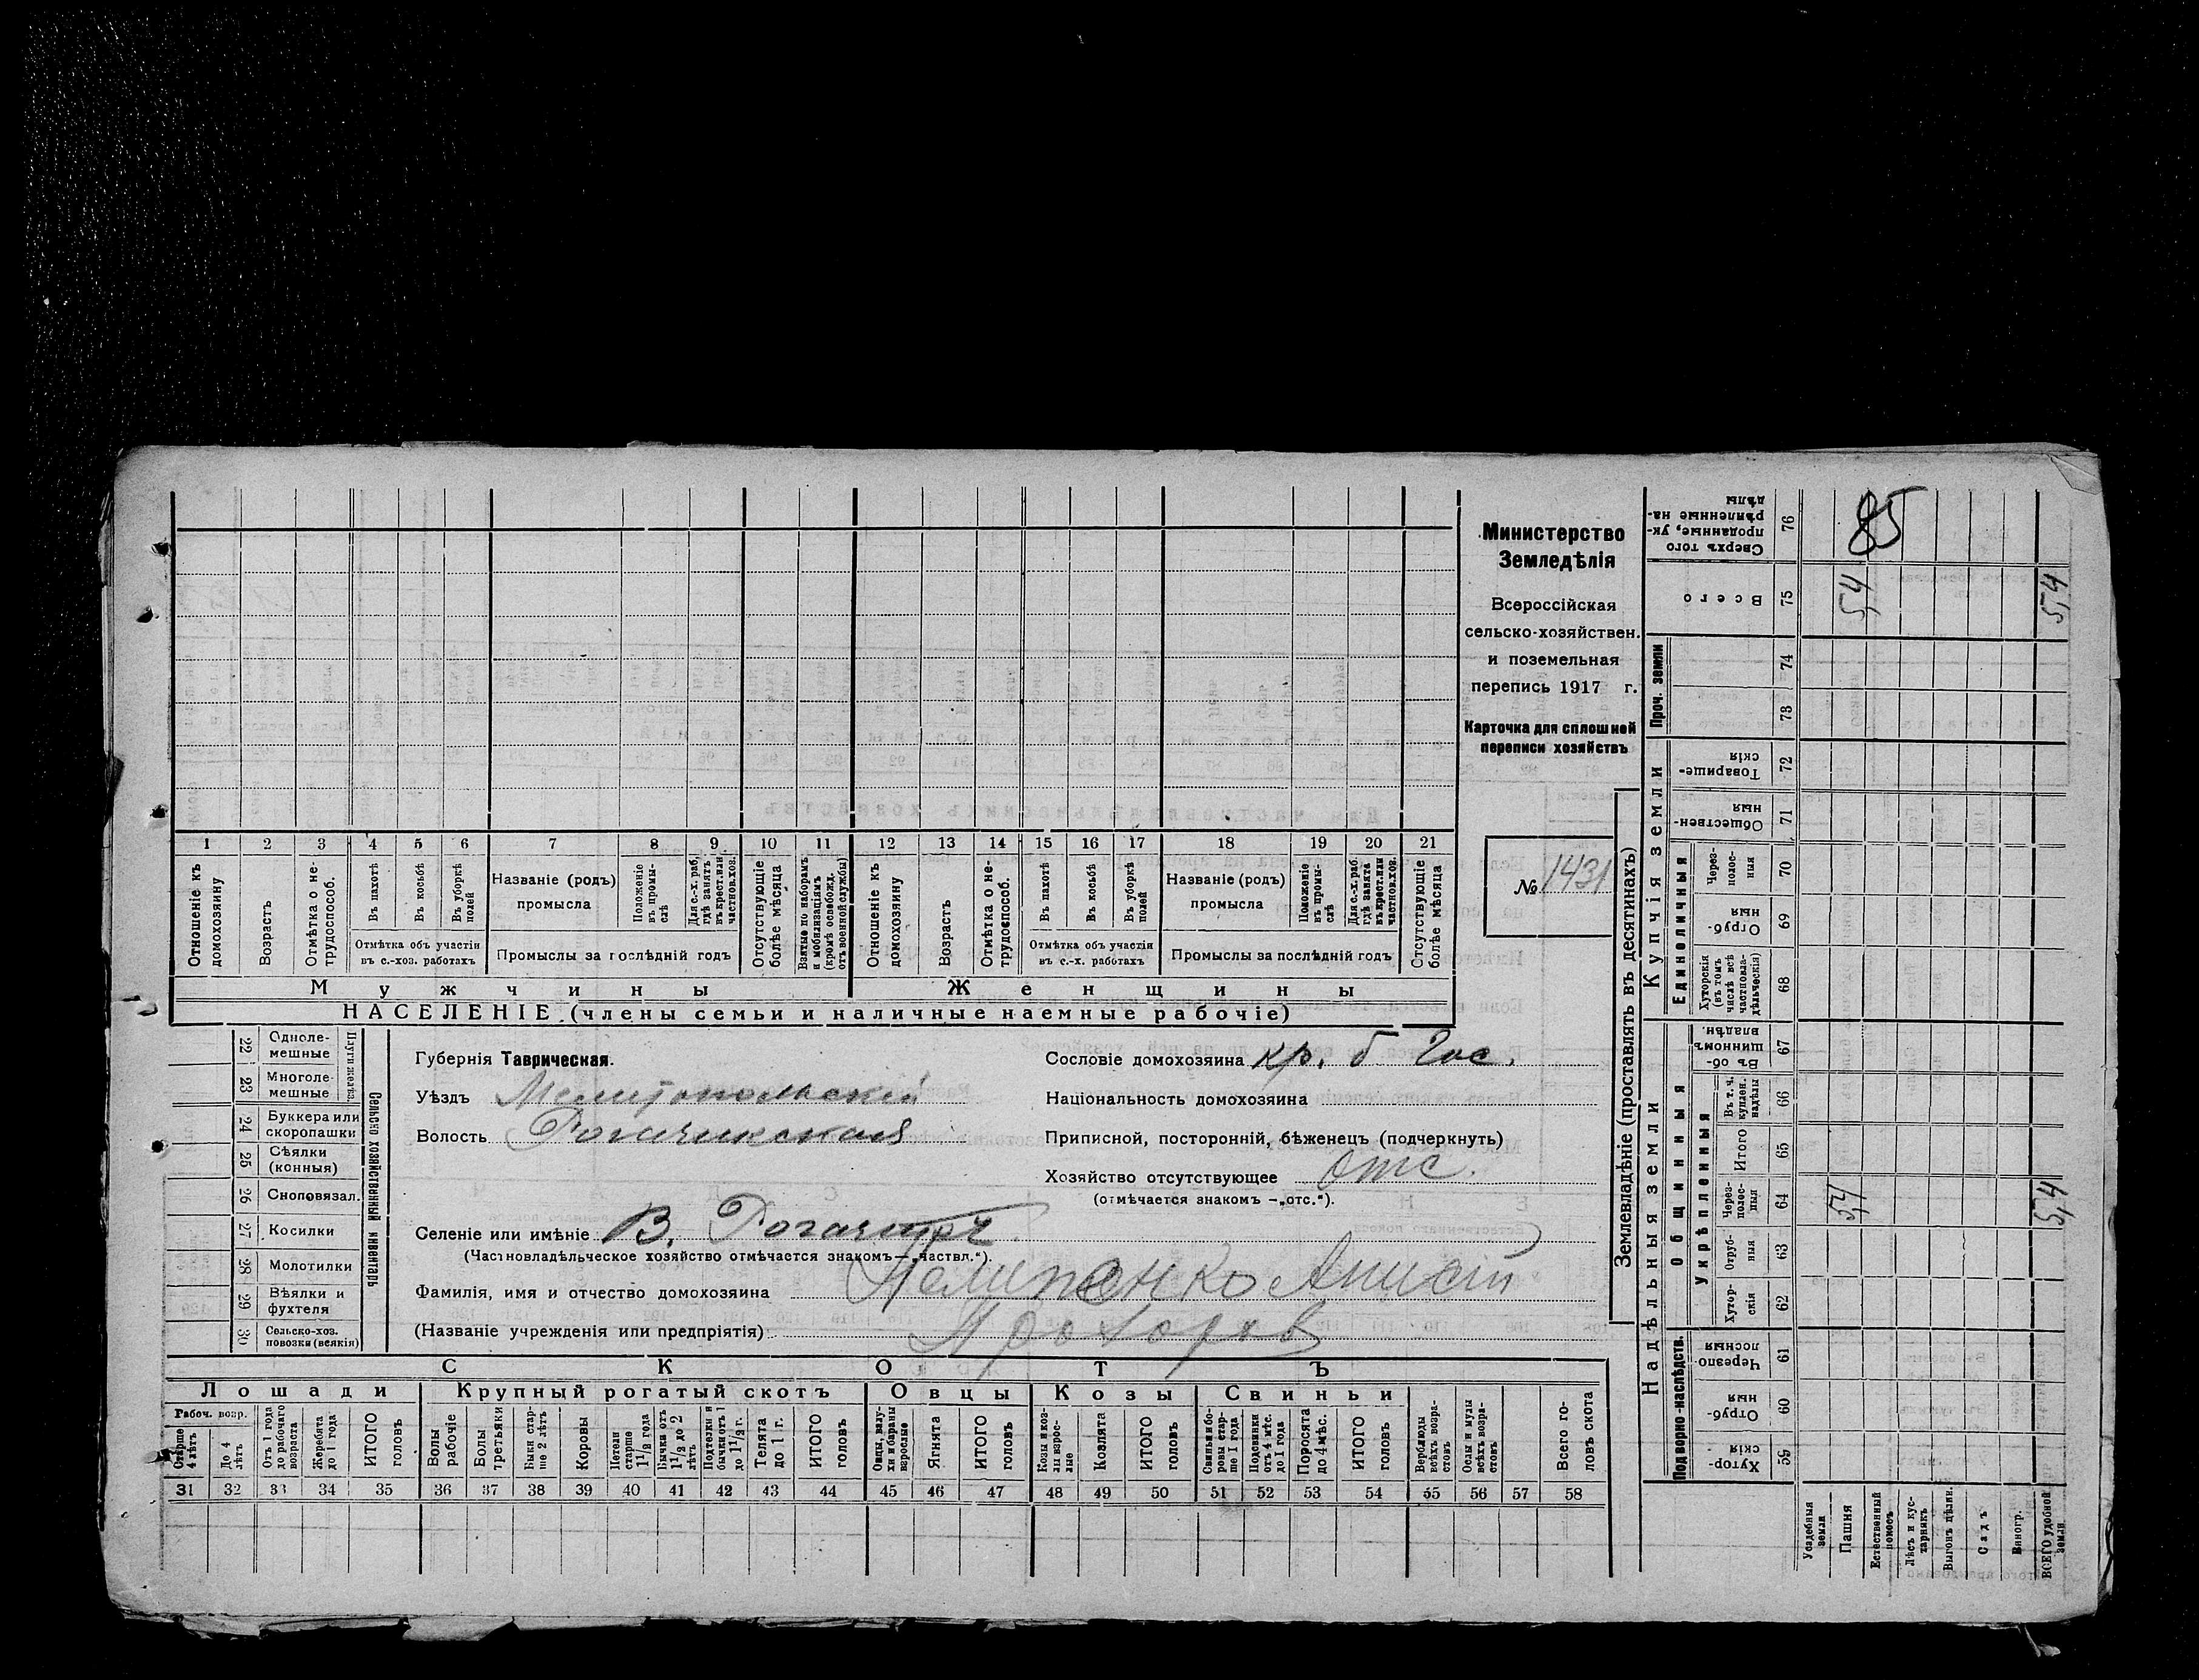 Министерство
Земледѣлія
Всероссійская
сельско-хозяйствен.
и поземельная
перепись 1917 г.
Карточка для сплошной
переписи хозяйствъ
№ 1431
1 2 3 4 5 6 7 8 9 10 11 12 13 14 15 16 17 18 19 20 21
Отношеніе къ домохозяину
Возрастъ
Отмѣтка о не-трудоспособ.
Въ пахотѣ
Въ косьбѣ
Въ уборкѣ полей
Отмѣтка объ участіи въ с.-хоз. работахъ
Названіе (родъ) промысла
Положеніе въ промы-слѣ
Для с.-х. раб., гдѣ занятъ въ крест. или частнов. хоз.
Промыслы за послѣдній годъ
Отсутствующіе болѣе мѣсяца
Взятые по наборамъ и мобилизаціямъ (кромѣ освобожд. отъ военной службы)
Отношеніе къ домохозяину
Возрастъ
Отмѣтка о не-трудоспособ.
Въ пахотѣ
Въ косьбѣ
Въ уборкѣ полей
Отмѣтка объ участіи въ с.-х. работахъ
Названіе (родъ) промысла
Положеніе въ промы-слѣ
Для с.-х. раб. гдѣ занята въ крест. или частнов. хоз.
Промыслы за послѣдній годъ
Отсутствующіе болѣе мѣсяца
Мужчины Женщины
НАСЕЛЕНІЕ (члены семьи и наличные наемные рабочіе)
Сельско хозяйственный инвентарь
Плуги желѣз.
22 Одноле-мешные
23 Многоле-мешные
24 Буккера или скоропашки
25 Сѣялки (конныя)
26 Сноповязал.
27 Косилки
28 Молотилки
29 Вѣялки и фухтеля
30 Сельско-хоз. повозки (всякія)
Губернія Таврическая.
Уѣздъ Мелитопольскій
Волость Рогачикская
Селеніе или имѣніе В. Рогачикъ
(Частновладѣльческое хозяйство отмѣчается знакомъ—„частвл.“).
Фамилія, имя и отчество домохозяина Пелипенко Анисій
(Названіе учрежденія или предпріятія) Прохоров
Сословіе домохозяина кр. б Гос.
Національность домохозяина
Приписной, посторонній, бѣженецъ (подчеркнуть)
Хозяйство отсутствующее отс.
(отмѣчается знакомъ —„отс.“).
СКОТЪ
Лошади Крупный рогатый скотъ Овцы Козы Свиньи
Рабоч. возр.
Старше 4 лѣтъ
До 4 лѣтъ
Отъ 1 года до рабочаго возраста
Жеребята до 1 года
ИТОГО головъ
Волы рабочіе
Волы третьяки
Быки стар-ше 2 лѣтъ
Коровы
Нетели старше 1 1/2 года
Бычки отъ 1 1/2 до 2 лѣтъ
Подтелки и бычки отъ 1 до 1 1/2 г.
Телята до 1 г.
ИТОГО головъ
Овцы, валу-хи и бараны взрослые
Ягнята
ИТОГО головъ
Козы и коз-лы взрос-лые
Козлята
ИТОГО головъ
Свиньи и бо-ровы стар-ше 1 года
Подсвинки отъ 4 мѣс. до 1 года
Поросята до 4 мѣс.
ИТОГО головъ
Верблюды всѣхъ возра-стовъ
Ослы и мулы всѣхъ возра-стовъ
Всего го-ловъ скота
31 32 33 34 35 36 37 38 39 40 41 42 43 44 45 46 47 48 49 50 51 52 53 54 55 56 57 58
Землевладѣніе (проставлять въ десятинахъ)
Надѣльныя земли Купчія земли Проч. земли
Подворно-наслѣдств. Общинныя Единоличныя
Укрѣпленныя
Сверхъ того проданные, ук-рѣпленные на-дѣлы 76 85
Всего 75 5,4 5,4
74
73
Товарище-скія 72
Обществен-ныя 71
Через-полос-ныя 70
Отруб-ныя 69
Хуторскія (въ томъ числѣ всѣ частновла-дѣльческія) 68
Въ об-щинномъ владѣн. 67
Въ т. ч. куплен. надѣлы 66
Итого 65
Через-полос-ныя 64 5,4 5,4
Отруб-ныя 63
Хутор-скія 62
Черезпо-лосныя 61
Отруб-ныя 60
Хутор-скія 59
Усадебныя земли
Пашня
Естественный покосъ
Лѣсъ и кус-тарникъ
Выгонъ цѣлин.
Садъ
Виногр.
ВСЕГО удобной земли